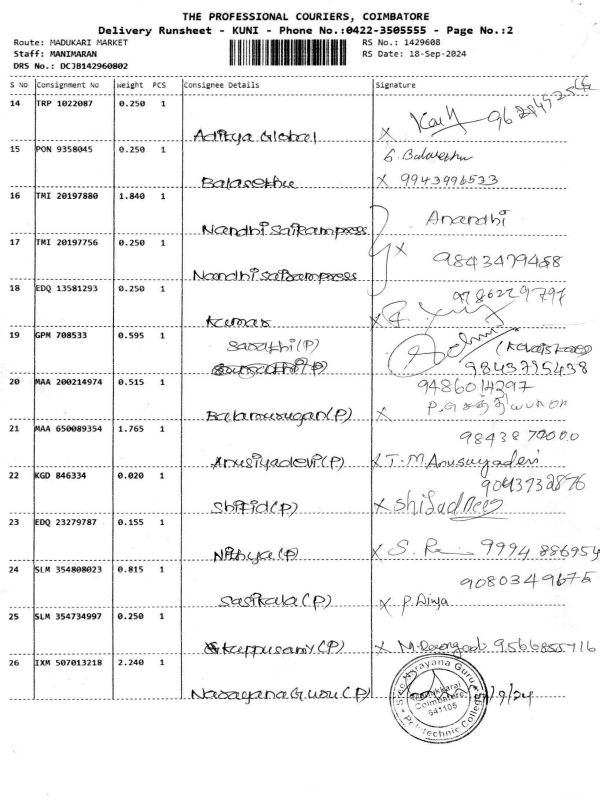 THE PROFESSIONAL COURIERS, COIMBATORE
Delivery Runsheet - KUNI - Phone No.:0422-3505555 - Page No.:2
Route: MADUKARI MARKET
RS No.: 1429608
Staff: MANIMARAN
RS Date: 18-Sep-2024
DRS No.: DCJB142960802
S No Consignment No Weight PCS Consignee Details Signature
14 TRP 1022087 0.250 1
Aditya Global X
15 PON 9358045 0.250 1
Balasethu X 9943996533
16 TMI 20197880 1.840 1
Anandhi
Nandhi Sairampress X
17 TMI 20197756 0.250 1
9843479458
Nandhi Sairampress
18 EDQ 13581293 0.250 1
9786229797
Kumar X
19 GPM 708533 0.595 1
Sarathi(P)
9843795438
20 MAA 200214974 0.515 1
9486014297
Balamurugan(P) X
21 MAA 650089354 1.765 1
Anusiyadevi(P) X T.M.Anusuyadevi
22 KGD 846334 0.020 1
9043732876
Shifid(P) X
23 EDQ 23279787 0.155 1
Nithya(P) X S. 9994886954
24 SLM 354808023 0.815 1
9080349675
Sasikala(P) X P.Divya
25 SLM 354734997 0.250 1
Kuppusamy(P) X 9566855716
26 IXM 507013218 2.240 1
Narayana Guru(P)
Sree Narayana Guru
Coimbatore
641105
Polytechnic College